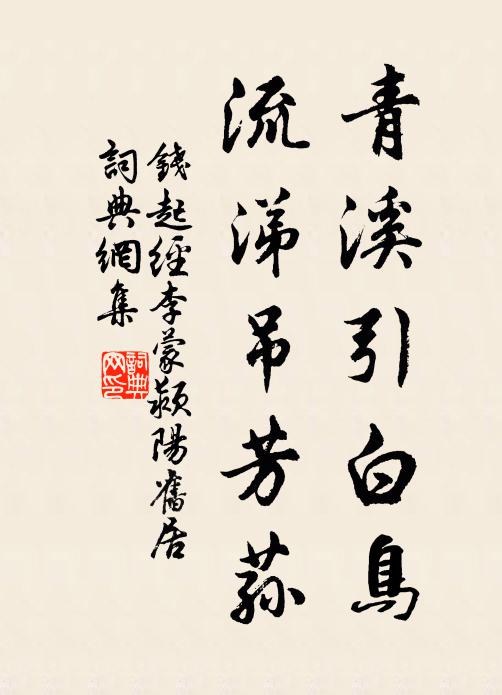 青溪引白鳥
流涕吊芳蓀
錢起經李蒙潁陽舊居
詞典網集
詞典網印